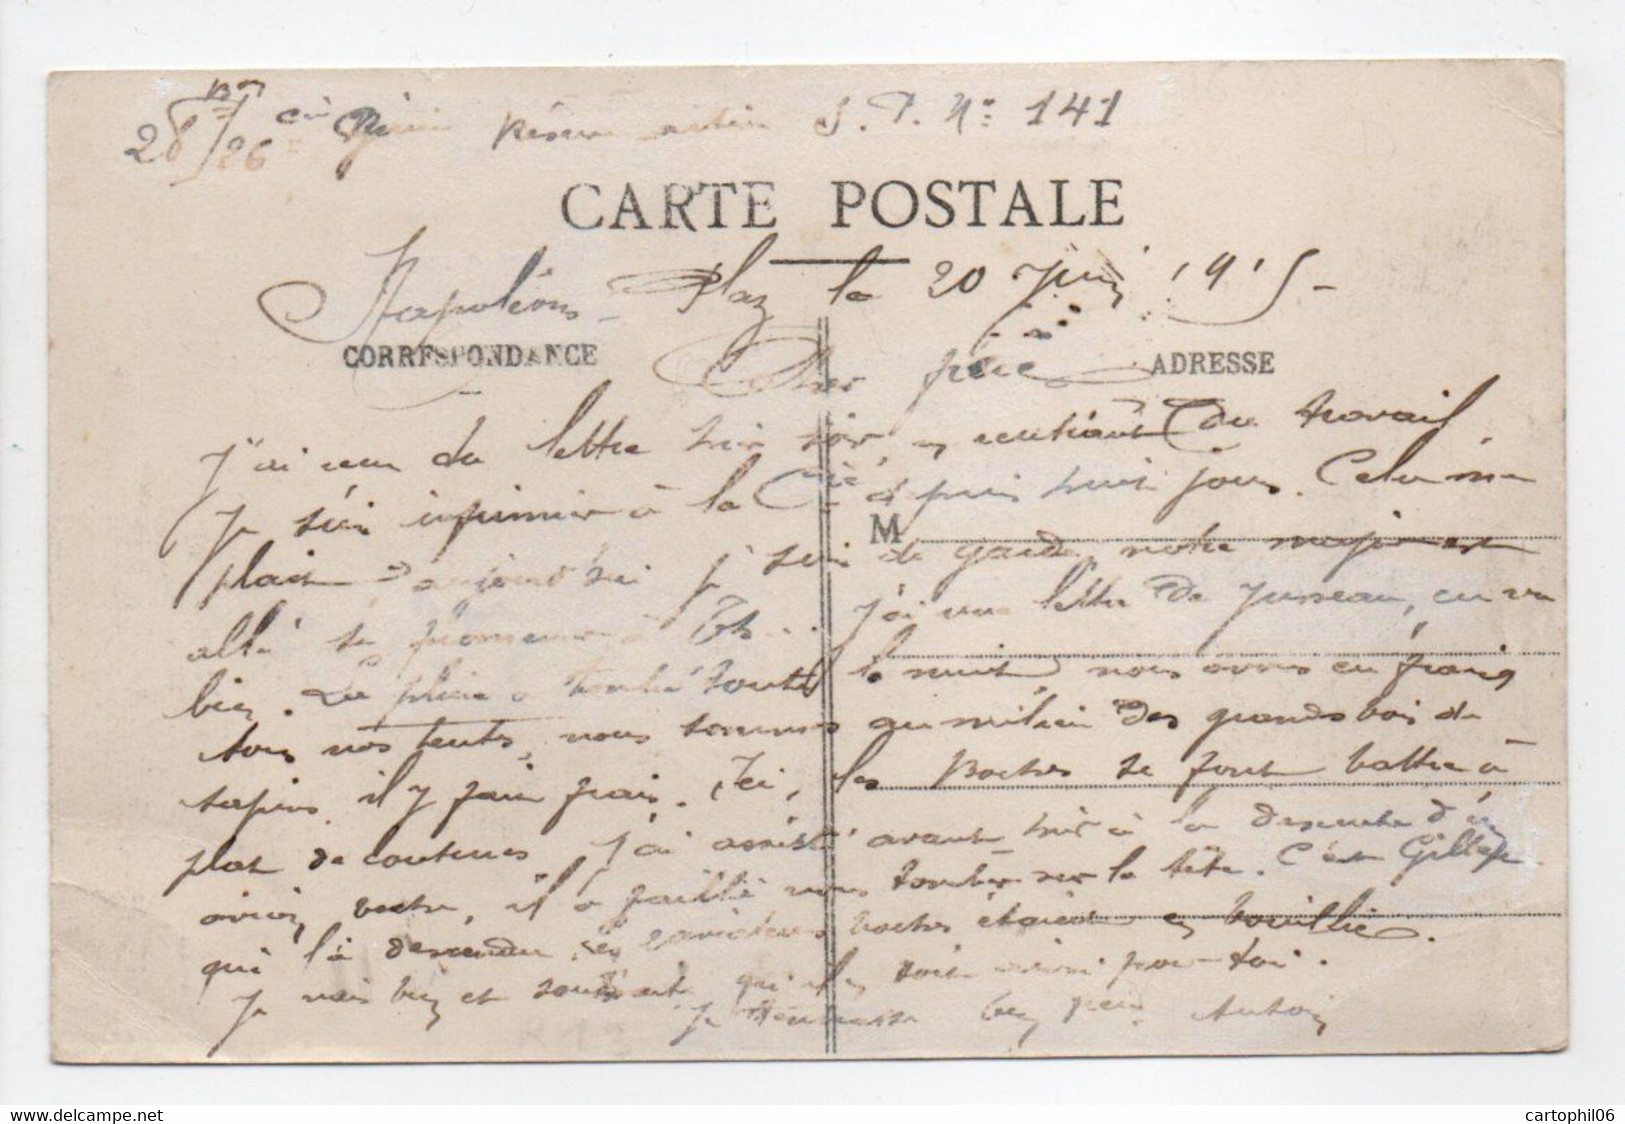 28 26 Cie S. P. No 141
CARTE POSTALE
Napoléons-Platz le 20 Juin 1915-
CORRESPONDANCE
ADRESSE
Cher père
J'ai reçu ta lettre hier soir, en rentrant du travail.
Je suis infirmier à la Cie depuis huit jours. Cela me
M
plait aujourd'hui je suis de garde, notre major est
allé se promener à Th... J'ai une lettre de Jusseau, ça va
bien. La pluie a tombé toute la nuit nous avons eu frais
sous nos tentes, nous sommes au milieu des grands bois de
sapins, il y fait frais. Ici, les Boches se font battre à
plat de coutures J'ai assisté avant hier à la descente d'un
avion boche, il a failli nous tomber sur la tête. C'est Gilbert
qui l'a descendu, les aviateurs boches étaient en bouillie.
Je vais bien et souhaite qu'il en soit ainsi pour toi.
Je t'embrasse bien père Antoine
cartophil06